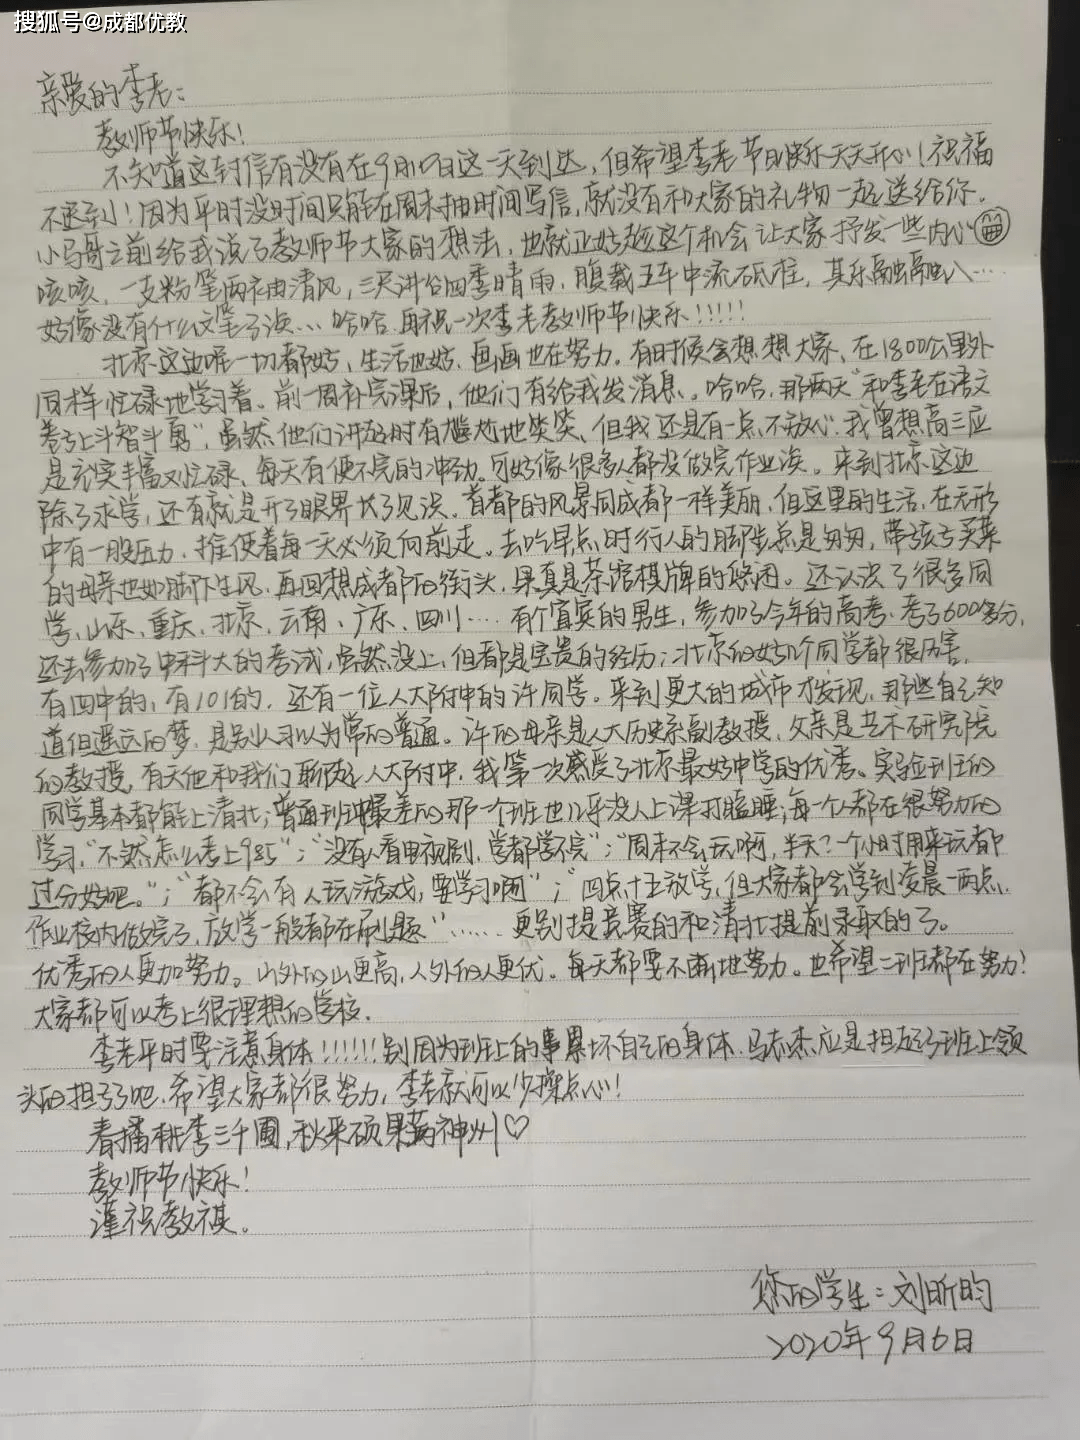 搜狐号@成都优教
亲爱的李老：
教师节快乐！
不知道这封信有没有在9月10日这一天到达，但希望李老节日快乐天天开心！祝福
不迟到！因为平时没时间只能在周末抽时间写信，就没有和大家的礼物一起送给你。
小马哥之前给我说了教师节大家的想法，也就正好趁这个机会让大家抒发一些内心
咳咳，一支粉笔两袖清风，三尺讲台四季晴雨，腹载五车中流砥柱，其乐融融八……
好像没有什么文笔了诶…哈哈 再祝一次李老教师节快乐！！！！！
北京这边呢一切都好，生活也好，画画也在努力。有时候会想想大家，在1800公里外
同样忙碌地学习着。前一周补完课后，他们有给我发消息。哈哈，那两天“和李老在语文
卷子上斗智斗勇”，虽然他们讲起时有尴尬地笑笑，但我还是有一点不放心，我曾想高三应
是充实丰富又忙碌，每天有使不完的冲劲。可好像很多人都没做完作业诶。来到北京这边
除了求学，还有就是开了眼界长了见识，首都的风景同成都一样美丽，但这里的生活，在无形
中有一股压力，推使着每一天必须向前走。去吃早点时行人的脚步总是匆匆，带孩子买菜
的母亲也如脚下生风，再回想成都的街头，果真是茶馆棋牌的悠闲。还认识了很多同
学，山东、重庆、北京、云南、广东、四川……有个宜宾的男生，参加了今年的高考，考了600多分，
还去参加了中科大的考试，虽然没上，但都是宝贵的经历；北京的好几个同学都很厉害，
有四中的，有101的，还有一位人大附中的许同学。来到更大的城市才发现，那些自己知
道但遥远的梦，是别人习以为常的普通。许的母亲是人大历史系副教授，父亲是艺术研究院
的教授，有天他和我们聊起人大附中，我第一次感受了北京最好中学的优秀。实验班的
同学基本都能上清北；普通班中最差的那一个班也几乎没人上课打瞌睡；每一个人都在很努力的
学习，“不然怎么考上985”；“没有人看电视剧，学都学不完”；“周末不会玩啊，半天？一个小时用来玩都
过分好吧。”；“都不会有人玩游戏，要学习啊”；“四点十五放学，但大家都会学到凌晨一两点，
作业校内做完了，放学一般都在刷题”……更别提竞赛的和清北提前录取的了。
优秀的人更加努力。山外的山更高，人外的人更优。每天都要不断地努力。也希望二班都在努力？
大家都可以考上很理想的学校。
李老平时要注意身体！！！！！！别因为班上的事累坏自己的身体，马志杰应是担起了班上领
头的担子了吧，希望大家都很努力，李老就可以少操点心！
春播桃李三千圃，秋来硕果满神州♡
教师节快乐！
谨祝教祺。
您的学生：刘昕昀
2020年9月6日